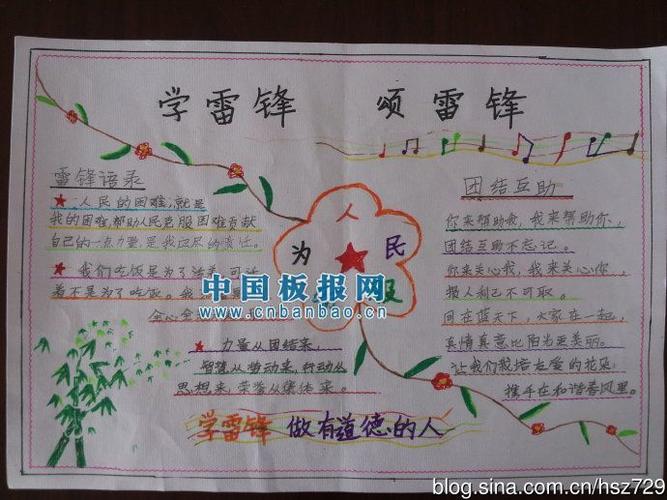 学雷锋 颂雷锋
雷锋语录
★人民的困难,就是
我的困难,帮助人民克服困难贡献
自己的一点力量,是我应尽的责任。
★我们吃饭是为了活着,可活
着不是为了吃饭。我
全心全
★力量从团结来,
智慧从劳动来,行动从
思想来,荣誉从集体来。
为人民
团结互助
你来帮助我,我来帮助你,
团结互助不忘记。
你来关心我,我来关心你,
损人利己不可取。
同在蓝天下,大家在一起,
真情真意比阳光更美丽。
让我们栽培友爱的花朵,
携手在和谐春风里。
学雷锋 做有道德的人
中国板报网
www.cnbanbao.cn
blog.sina.com.cn/hsz729